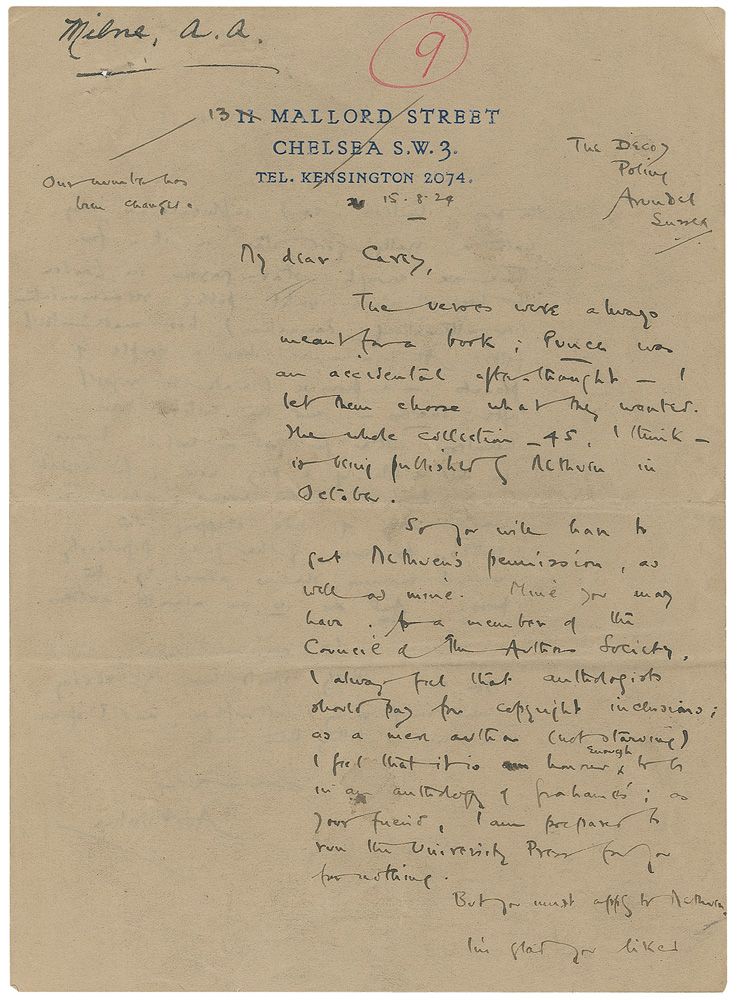 Milne, A. A.
9
13 11 MALLORD STREET
CHELSEA S.W.3.
TEL. KENSINGTON 2074.
Our number has
been changed.
The Decoy
Poling
Arundel
Sussex
15.8.24
My dear Carey,
The verses were always
meant for a book; Punch was
an accidental after-thought — I
let them choose what they wanted.
The whole collection — 45, I think —
is being published by Methuen in
October.
So you will have to
get Methuen's permission, as
well as mine. Mine you may
have. As a member of the
Council of the Authors Society,
I always feel that anthologists
should pay for copyright inclusions;
as a mere author (not starving)
I feel that it is honour enough to be
in an anthology of Grahame's; as
your friend, I am prepared to
run the University Press for you
for nothing.
But you must apply to Methuen.
I'm glad you liked